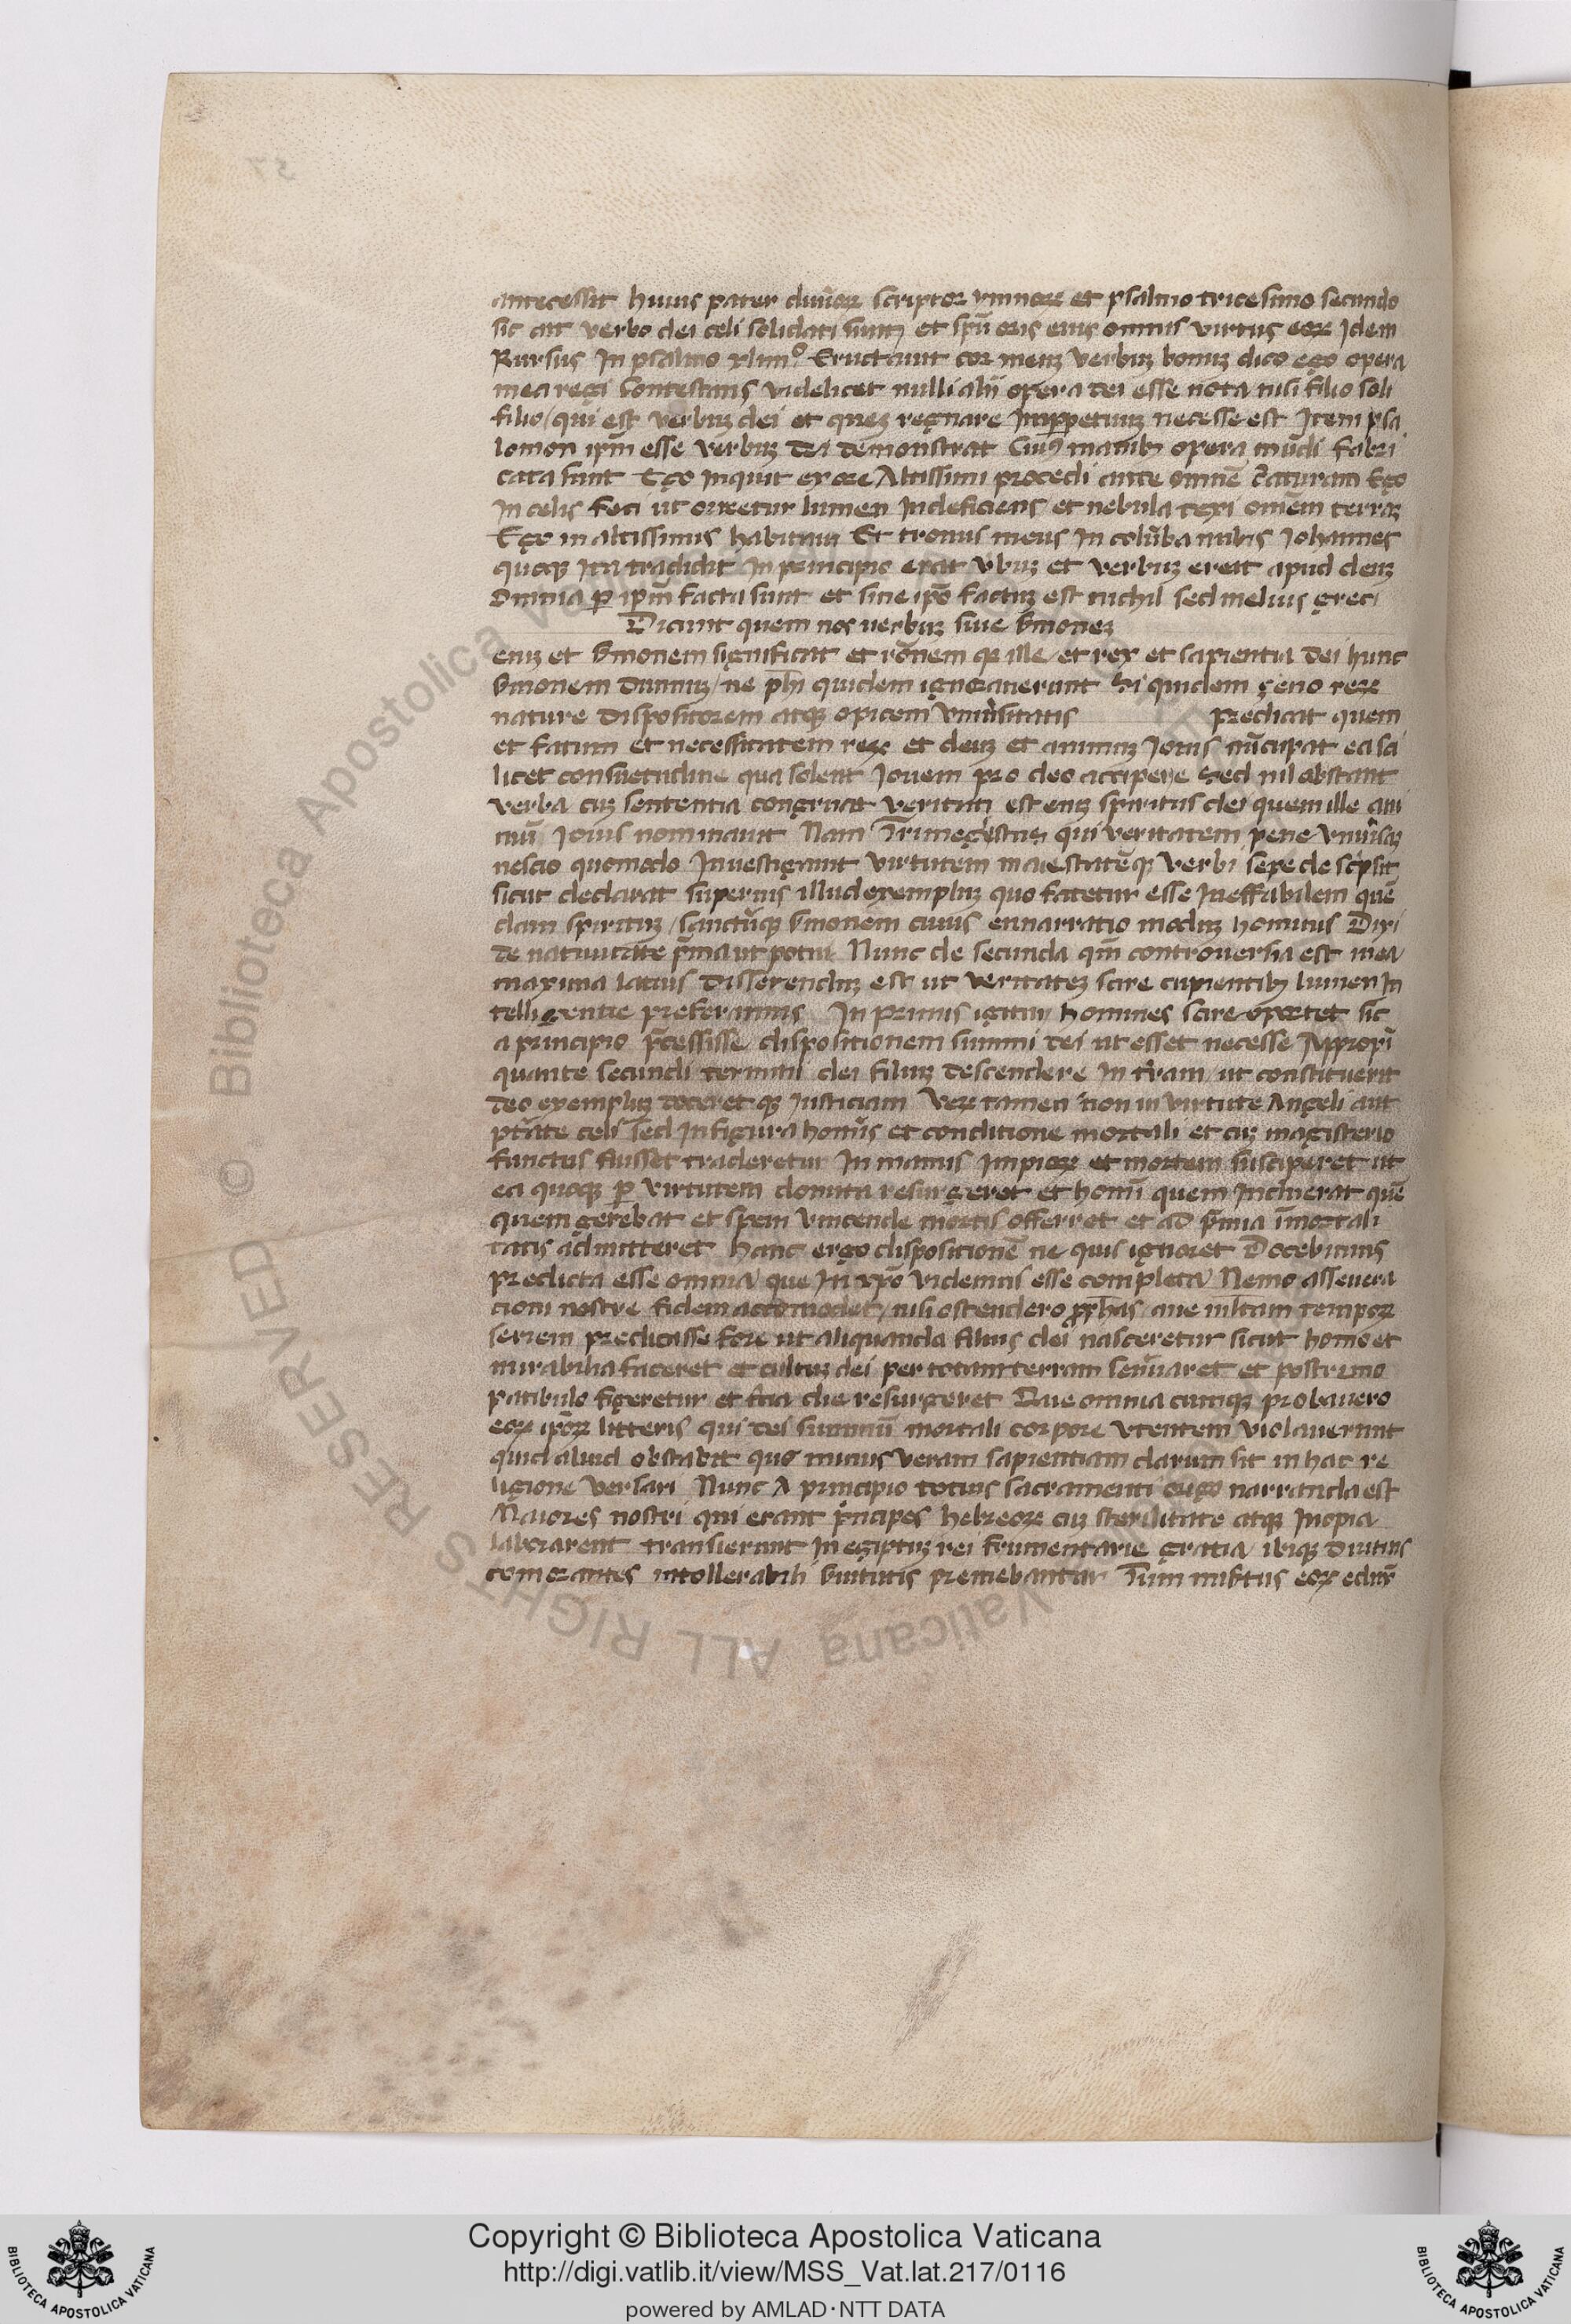 antecessit huius pater diuinoꝝ scriptor ymnoꝝ et psalmo tricesimo secundo
sic ait verbo dei celi solidati sunt et spũ oris eius omnis virtus eoꝝ Idem
Rursus In psalmo xliiiiº Eructauit cor meuȝ verbuȝ bonuȝ dico ego opera
mea regi Contestans videlicet nulli alii opera dei esse nota nisi filio soli
filio/ qui est verbuȝ dei et queȝ regnare Imꝑpetuuȝ necesse est Item psa
lomon ip̃m esse verbuȝ dei demonstrat Cuiꝰ manibȝ opera mũdi fabri
cata sunt Ego Inquit ex ore Altissimi processi ante omnẽ c̃aturam Ego
In celis feci ut oriretur lumen Indeficiens et nebula texi om̃em terraȝ
Ego in altissimis habitaui Et tronus meus In colũba nubis Johannes
quoqȝ Ita tradidit In principio erat vbuȝ et verbuȝ erat apud deuȝ
Omnia ꝑ ip̃m facta sunt et sine ip̃o factuȝ est nichil sed melius greci
Dicunt quem nos verbuȝ siue s̃moneȝ
eniȝ et s̃monem significat et rõnem qȝ ille/ et rex et sapientia dei hunc
s̃monem diuinuȝ/ ne ph̃i quidem ignorauerunt Si quidem Zeno reꝝ
nature dispositorem atqȝ opicem Vniũsitatis predicat quem
et fatum et necessitatem reꝝ et deuȝ et animuȝ Jouis nũcupat ea sci
licet consuetudine qua solent Jouem pro deo accipere Sed nil obstant
verba cuȝ sententia congruat veritati est eniȝ spiritus dei quem ille ani
mũ Jouis nominauit Nam Trimegistus qui veritatem pene vniũsaȝ
nescio quomodo Inuestigauit virtutem maiestatẽqȝ verbi sepe desc̃psit
sicut declarat superius illud exempluȝ quo fatetur esse Ineffabilem quẽ
dam spirituȝ/ sanctũqȝ s̃monem cuius ennarratio moduȝ hominis Dixi
de natiuitate p̃ma ut potui Nunc de secunda qm̃ controuersia est mea
maxima latius disserenduȝ est ut veritateȝ scire cupientibȝ lumen In
telligentie preferamus In primis igitur homines scire oportet sic
a principio p̃cessisse dispositionem summi dei ut esset necesse Appropi
quante seculi termino dei filiuȝ descendere In t̃ram/ ut constitueret
deo exempluȝ doceret qȝ Iusticiam Veꝝ tamen non in virtute Angeli aut
pt̃ate celi sed In figura hom̃is et conditione mortali et cuȝ magisterio
functus fuisset traderetur In manus Impioꝝ et mortem susciperet ut
ea quoqȝ ꝑ virtutem domita resurgeret et homĩ quem Induerat quẽ
quem gerebat et spem vincende mortis offerret et ad p̃mia ĩmortali
tatis admitteret Hanc ergo dispositionẽ ne quis ignoret Docebimus
predicta esse omnia que In xp̃o videmus esse completa Nemo asseuera
tioni nostre fidem accomodet/ nisi ostendero ꝓph̃as ante mltam tempoꝝ
seriem predicasse fore ut aliquando filius dei nasceretur sicut homo et
mirabilia faceret et cultuȝ dei per totam terram seminaret et postremo
patibulo figeretur et tcia die resurgeret Que omnia cumqȝ probauero
eoꝝ ip̃oꝝ litteris qui dei summũ mortali corpore vtentem violauerunt
quid aliud obstabit quo minus veram sapientiam claruм sit in hac re
ligione versari Nunc A principio totius sacramenti origo narranda est
Maiores nostri qui erant p̃ncipes hebreoꝝ cuȝ sterilitate atqȝ Inopia
laborarent transierunt In egiptuȝ rei frumentarie gratia ibiqȝ diutius
comorantes intollerabili s̃uitutis premebantur
Copyright © Biblioteca Apostolica Vaticana
http://digi.vatlib.it/view/MSS_Vat.lat.217/0116
powered by AMLAD·NTT DATA
BIBLIOTECA APOSTOLICA VATICANA
BIBLIOTECA APOSTOLICA VATICANA